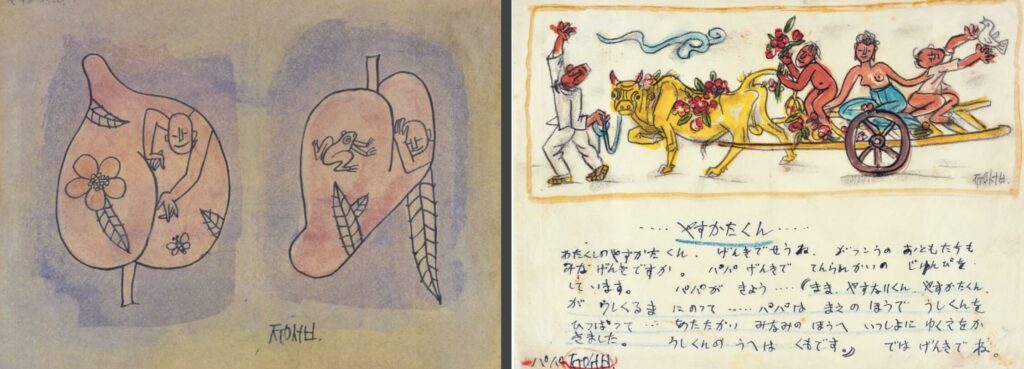 ㅈㅜㅇㅅㅓㅂ.
ㅈㅜㅇㅅㅓㅂ.
····· やすかたくん ·····
わたくしのやすかたくん、げんきでせうね。がっこうの おともだちも
みなげんきですか。パパ げんきで てんらんかいの じゅんびを
しています。パパが きょう ····(まま、やすなりくん、やすかたくん、
が うしくるま にのって ····· パパは まえの ほうで うしくんを
ひっぱって ··· あたたかい みなみの ほうへ いっしよに ゆくえをか
きました。うしくんの うへは くもです。) では げんきで ね。
パパ ㅈㅜㅇㅅㅓㅂ